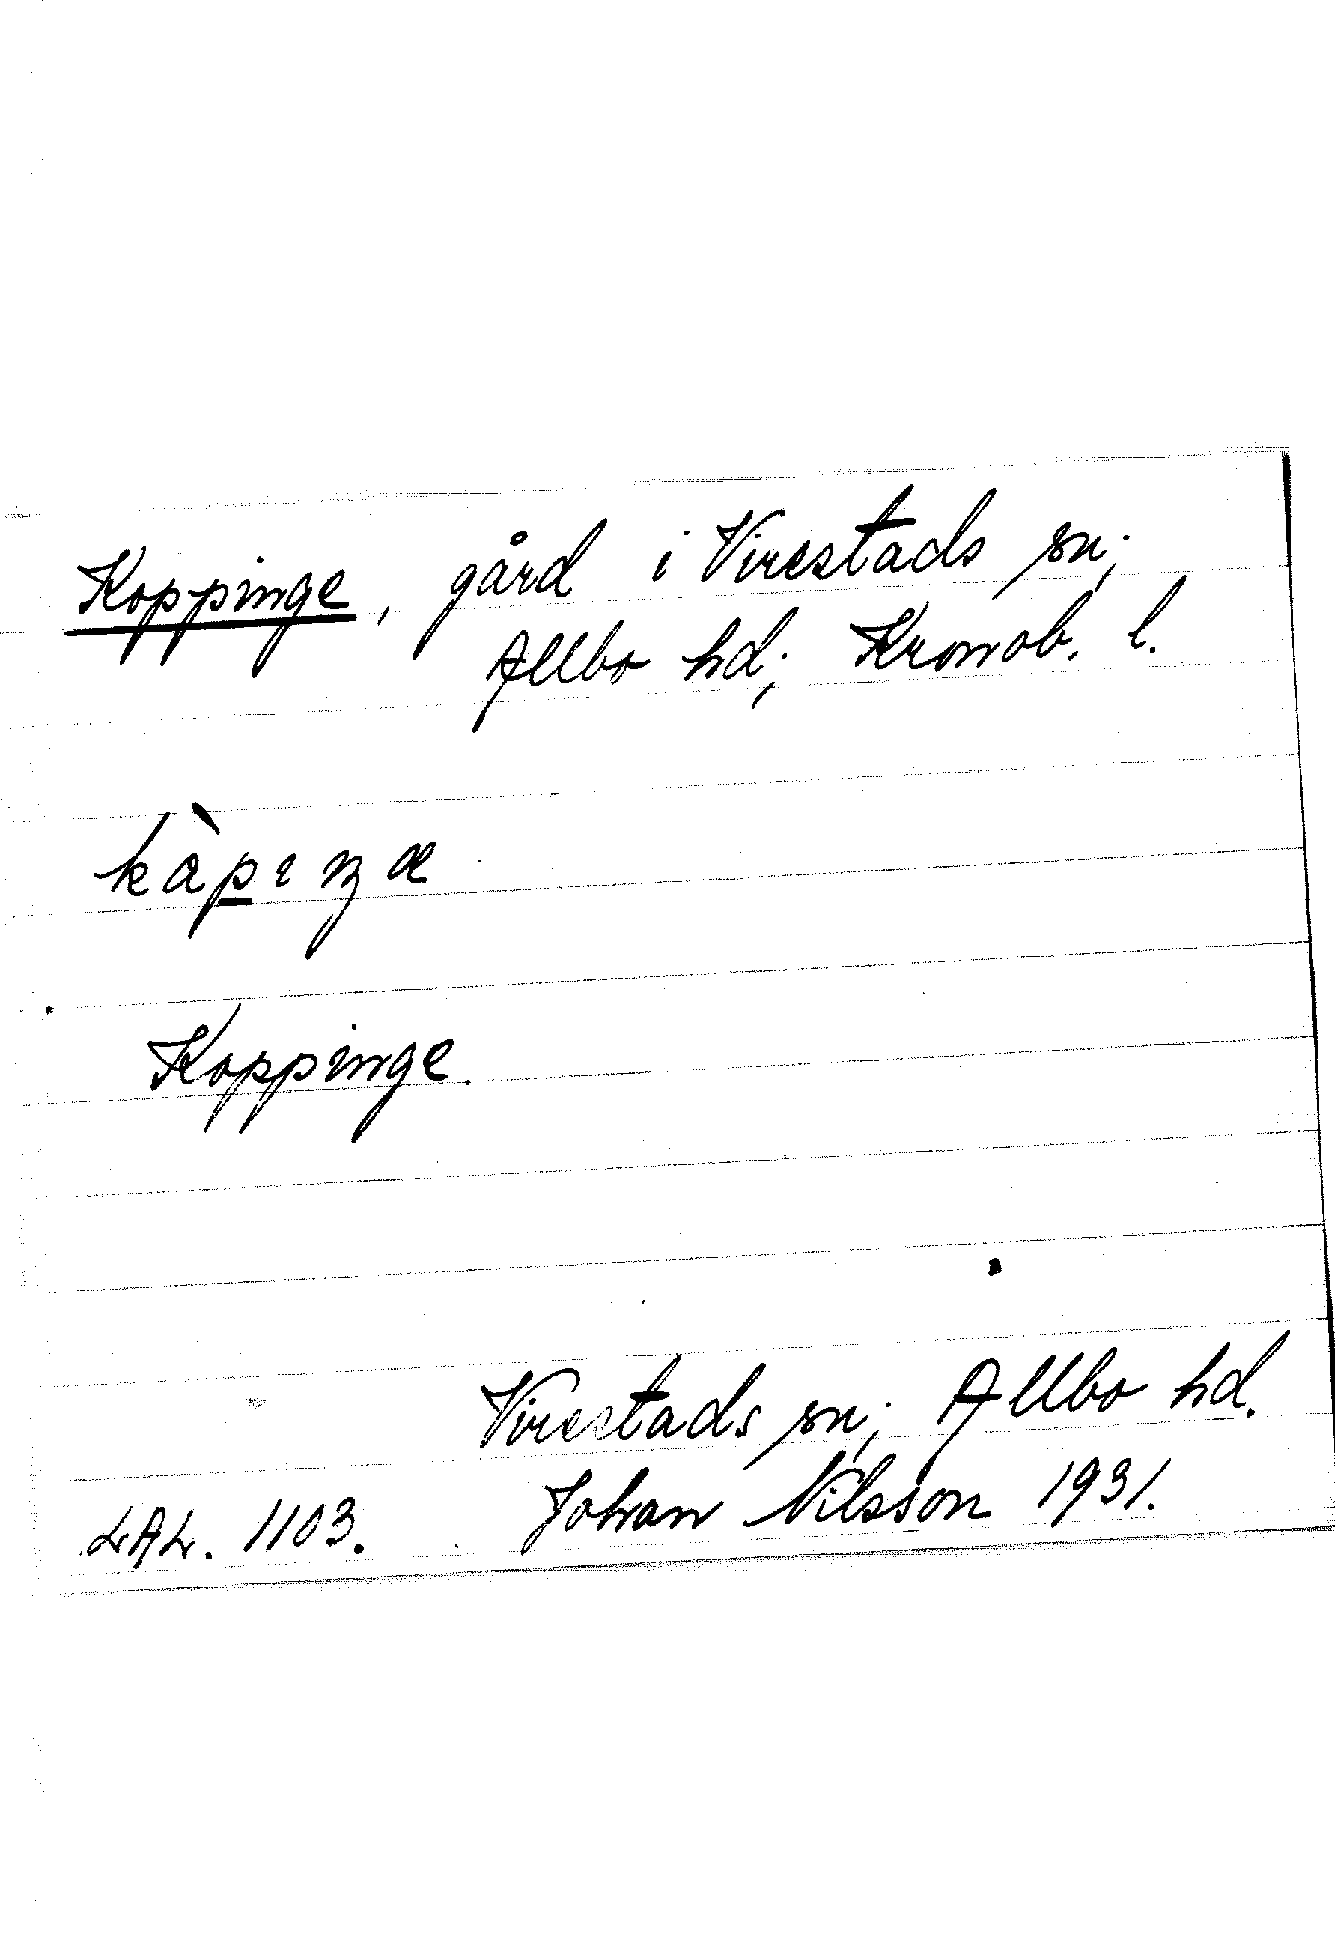 Koppinge, gård i Virestads sn;
Allbo hd; Kronob. l.
kàpıŋæ
Koppinge.
Virestads sn; Allbo hd.
LAL. 1103. Johan Nilsson 1931.